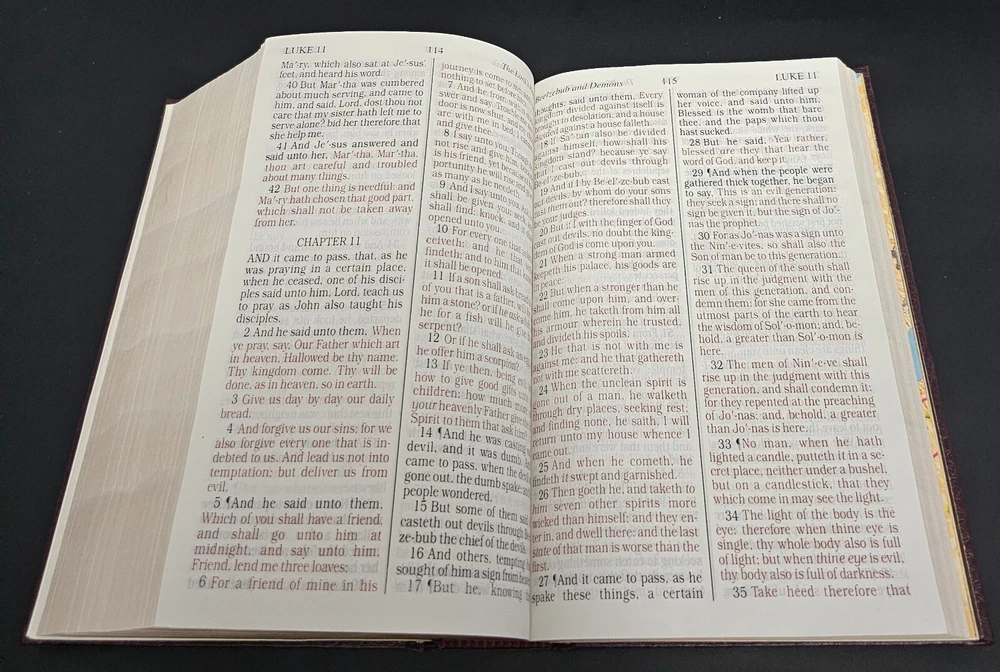 LUKE 11
114
Ma'-ry, which also sat at Je'-sus'
feet, and heard his word.
40 But Mar'-tha was cumbered
about much serving, and came to
him, and said, Lord, dost thou not
care that my sister hath left me to
serve alone? bid her therefore that
she help me.
41 And Je'-sus answered and
said unto her, Mar'-tha, Mar'-tha,
thou art careful and troubled
about many things:
42 But one thing is needful: and
Ma'-ry hath chosen that good part,
which shall not be taken away
from her.
CHAPTER 11
AND it came to pass, that, as he
was praying in a certain place,
when he ceased, one of his disci-
ples said unto him, Lord, teach us
to pray, as John also taught his
disciples.
2 And he said unto them, When
ye pray, say, Our Father which art
in heaven, Hallowed be thy name.
Thy kingdom come. Thy will be
done, as in heaven, so in earth.
3 Give us day by day our daily
bread.
4 And forgive us our sins; for we
also forgive every one that is in-
debted to us. And lead us not into
temptation; but deliver us from
evil.
5 ¶And he said unto them,
Which of you shall have a friend,
and shall go unto him at
midnight, and say unto him,
Friend, lend me three loaves;
6 For a friend of mine in his
The Lord's
journey is come to
nothing to set before
7 And he from within
swer and say, Trouble
door is now shut, and
are with me in bed;
and give thee.
8 I say unto you, Though
not rise and give him,
is his friend, yet because
portunity he will rise
as many as he needeth.
9 And I say unto you,
shall be given you; seek,
shall find; knock, and
opened unto you.
10 For every one that
ceiveth; and he that
findeth; and to him that
it shall be opened.
11 If a son shall ask bread
of you that is a father, will
him a stone? or if he ask a
he for a fish will he give
serpent?
12 Or if he shall ask an
he offer him a scorpion?
13 If ye then, being evil,
how to give good gifts
children: how much more
your heavenly Father give the
Spirit to them that ask him?
14 ¶And he was casting
devil, and it was dumb. And
came to pass, when the devil
gone out, the dumb spake; and
people wondered.
15 But some of them said,
casteth out devils through Be-
ze-bub the chief of the devils.
16 And others, tempting
sought of him a sign from heaven.
17 ¶But he, knowing
Beelzebub and Demons
115
LUKE 11
thoughts, said unto them, Every
kingdom divided against itself is
brought to desolation; and a house
divided against a house falleth.
18 If Sa'-tan also be divided
against himself, how shall his
kingdom stand? because ye say
that I cast out devils through
Be-el'-ze-bub.
19 And if I by Be-el'-ze-bub cast
out devils, by whom do your sons
cast them out? therefore shall they
be your judges.
20 But if I with the finger of God
cast out devils, no doubt the king-
dom of God is come upon you.
21 When a strong man armed
keepeth his palace, his goods are
in peace:
22 But when a stronger than he
shall come upon him, and over-
come him, he taketh from him all
his armour wherein he trusted,
and divideth his spoils.
23 He that is not with me is
against me: and he that gathereth
not with me scattereth.
24 When the unclean spirit is
gone out of a man, he walketh
through dry places, seeking rest;
and finding none, he saith, I will
return unto my house whence I
came out.
25 And when he cometh, he
findeth it swept and garnished.
26 Then goeth he, and taketh to
him seven other spirits more
wicked than himself; and they en-
ter in, and dwell there: and the last
state of that man is worse than the
first.
27 ¶And it came to pass, as he
spake these things, a certain
woman of the company lifted up
her voice, and said unto him,
Blessed is the womb that bare
thee, and the paps which thou
hast sucked.
28 But he said, Yea rather,
blessed are they that hear the
word of God, and keep it.
29 ¶And when the people were
gathered thick together, he began
to say, This is an evil generation:
they seek a sign; and there shall no
sign be given it, but the sign of Jo'-
nas the prophet.
30 For as Jo'-nas was a sign unto
the Nin'-e-vites, so shall also the
Son of man be to this generation.
31 The queen of the south shall
rise up in the judgment with the
men of this generation, and con-
demn them: for she came from the
utmost parts of the earth to hear
the wisdom of Sol'-o-mon; and, be-
hold, a greater than Sol'-o-mon is
here.
32 The men of Nin'-e-ve shall
rise up in the judgment with this
generation, and shall condemn it:
for they repented at the preaching
of Jo'-nas; and, behold, a greater
than Jo'-nas is here.
33 ¶No man, when he hath
lighted a candle, putteth it in a se-
cret place, neither under a bushel,
but on a candlestick, that they
which come in may see the light.
34 The light of the body is the
eye: therefore when thine eye is
single, thy whole body also is full
of light; but when thine eye is evil,
thy body also is full of darkness.
35 Take heed therefore that